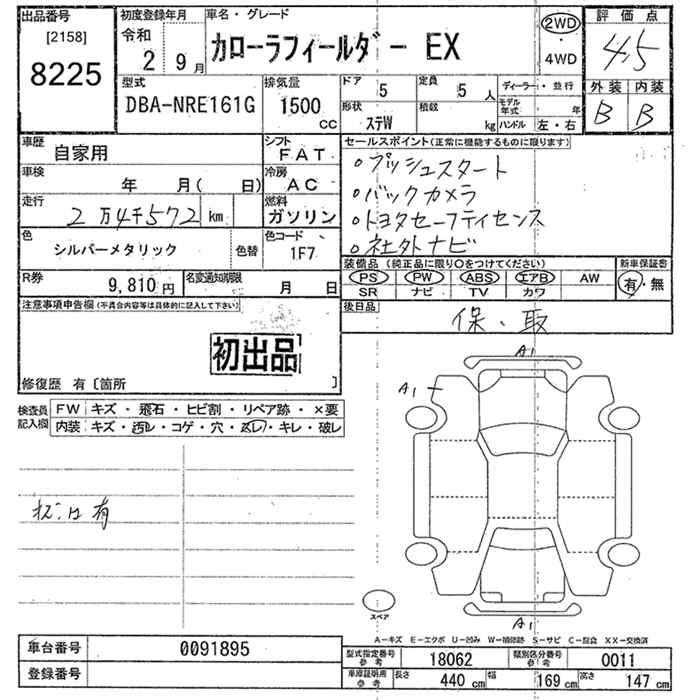 出品番号 初度登録年月 車名・グレード 2WD 評価点
[2158] 令和 カローラフィールダー EX ・ 4.5
8225 2 9月 4WD
型式 排気量 ドア 定員 ディーラー・並行 外装 内装
DBA-NRE161G 1500 CC 5 5人 モデル年式 年 B B
形状 積載
ステW kg ハンドル 左・右
車歴 自家用 シフト FAT セールスポイント(正常に機能するものに限ります)
車検 年 月( 日) 冷房 AC 。プッシュスタート
走行 2万4千572 km 燃料 ガソリン 。バックカメラ
。トヨタセーフティセンス
色 シルバーメタリック 色替 色コード 1F7 。社外ナビ
装備品(純正品に限り○をつけてください) 新車保証書
R券 9,810円 名変通知期限 月 日 PS PW ABS エアB AW 有・無
SR ナビ TV カワ
注意事項申告欄(不具合内容等は具体的に記入して下さい) 後日品
保、取
初出品
修復歴 有〔箇所 〕
A1
A1
検査員記入欄 FW キズ・飛石・ヒビ割・リペア跡・×要
内装 キズ・汚レ・コゲ・穴・スレ・キレ・破レ
スペア
A1
A-キズ E-エクボ U-凹み W-補修跡 S-サビ C-腐食 XX-交換済
車台番号 0091895 型式指定番号 参考 18062 類別区分番号 参考 0011
登録番号 車庫証明用 参考 長さ 440 cm 幅 169 cm 高さ 147 cm